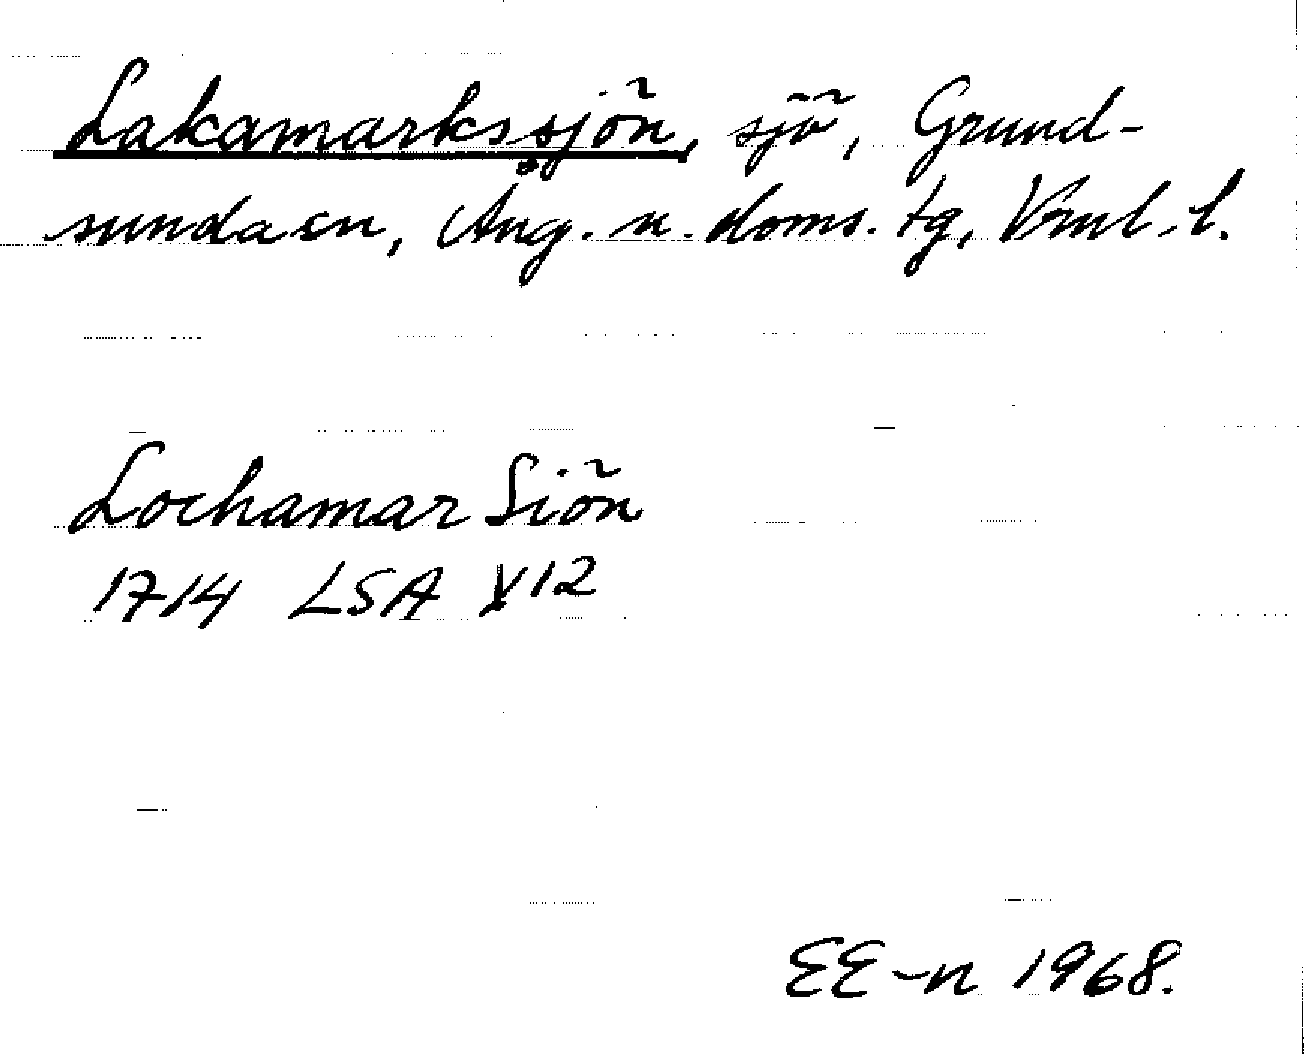 Lakamarkssjön, sjö, Grund-
sunda sn, Ång. n. doms. tg, Vnl. l.
Lochamar Siön
1714 LSA Y12
EE-n 1968.